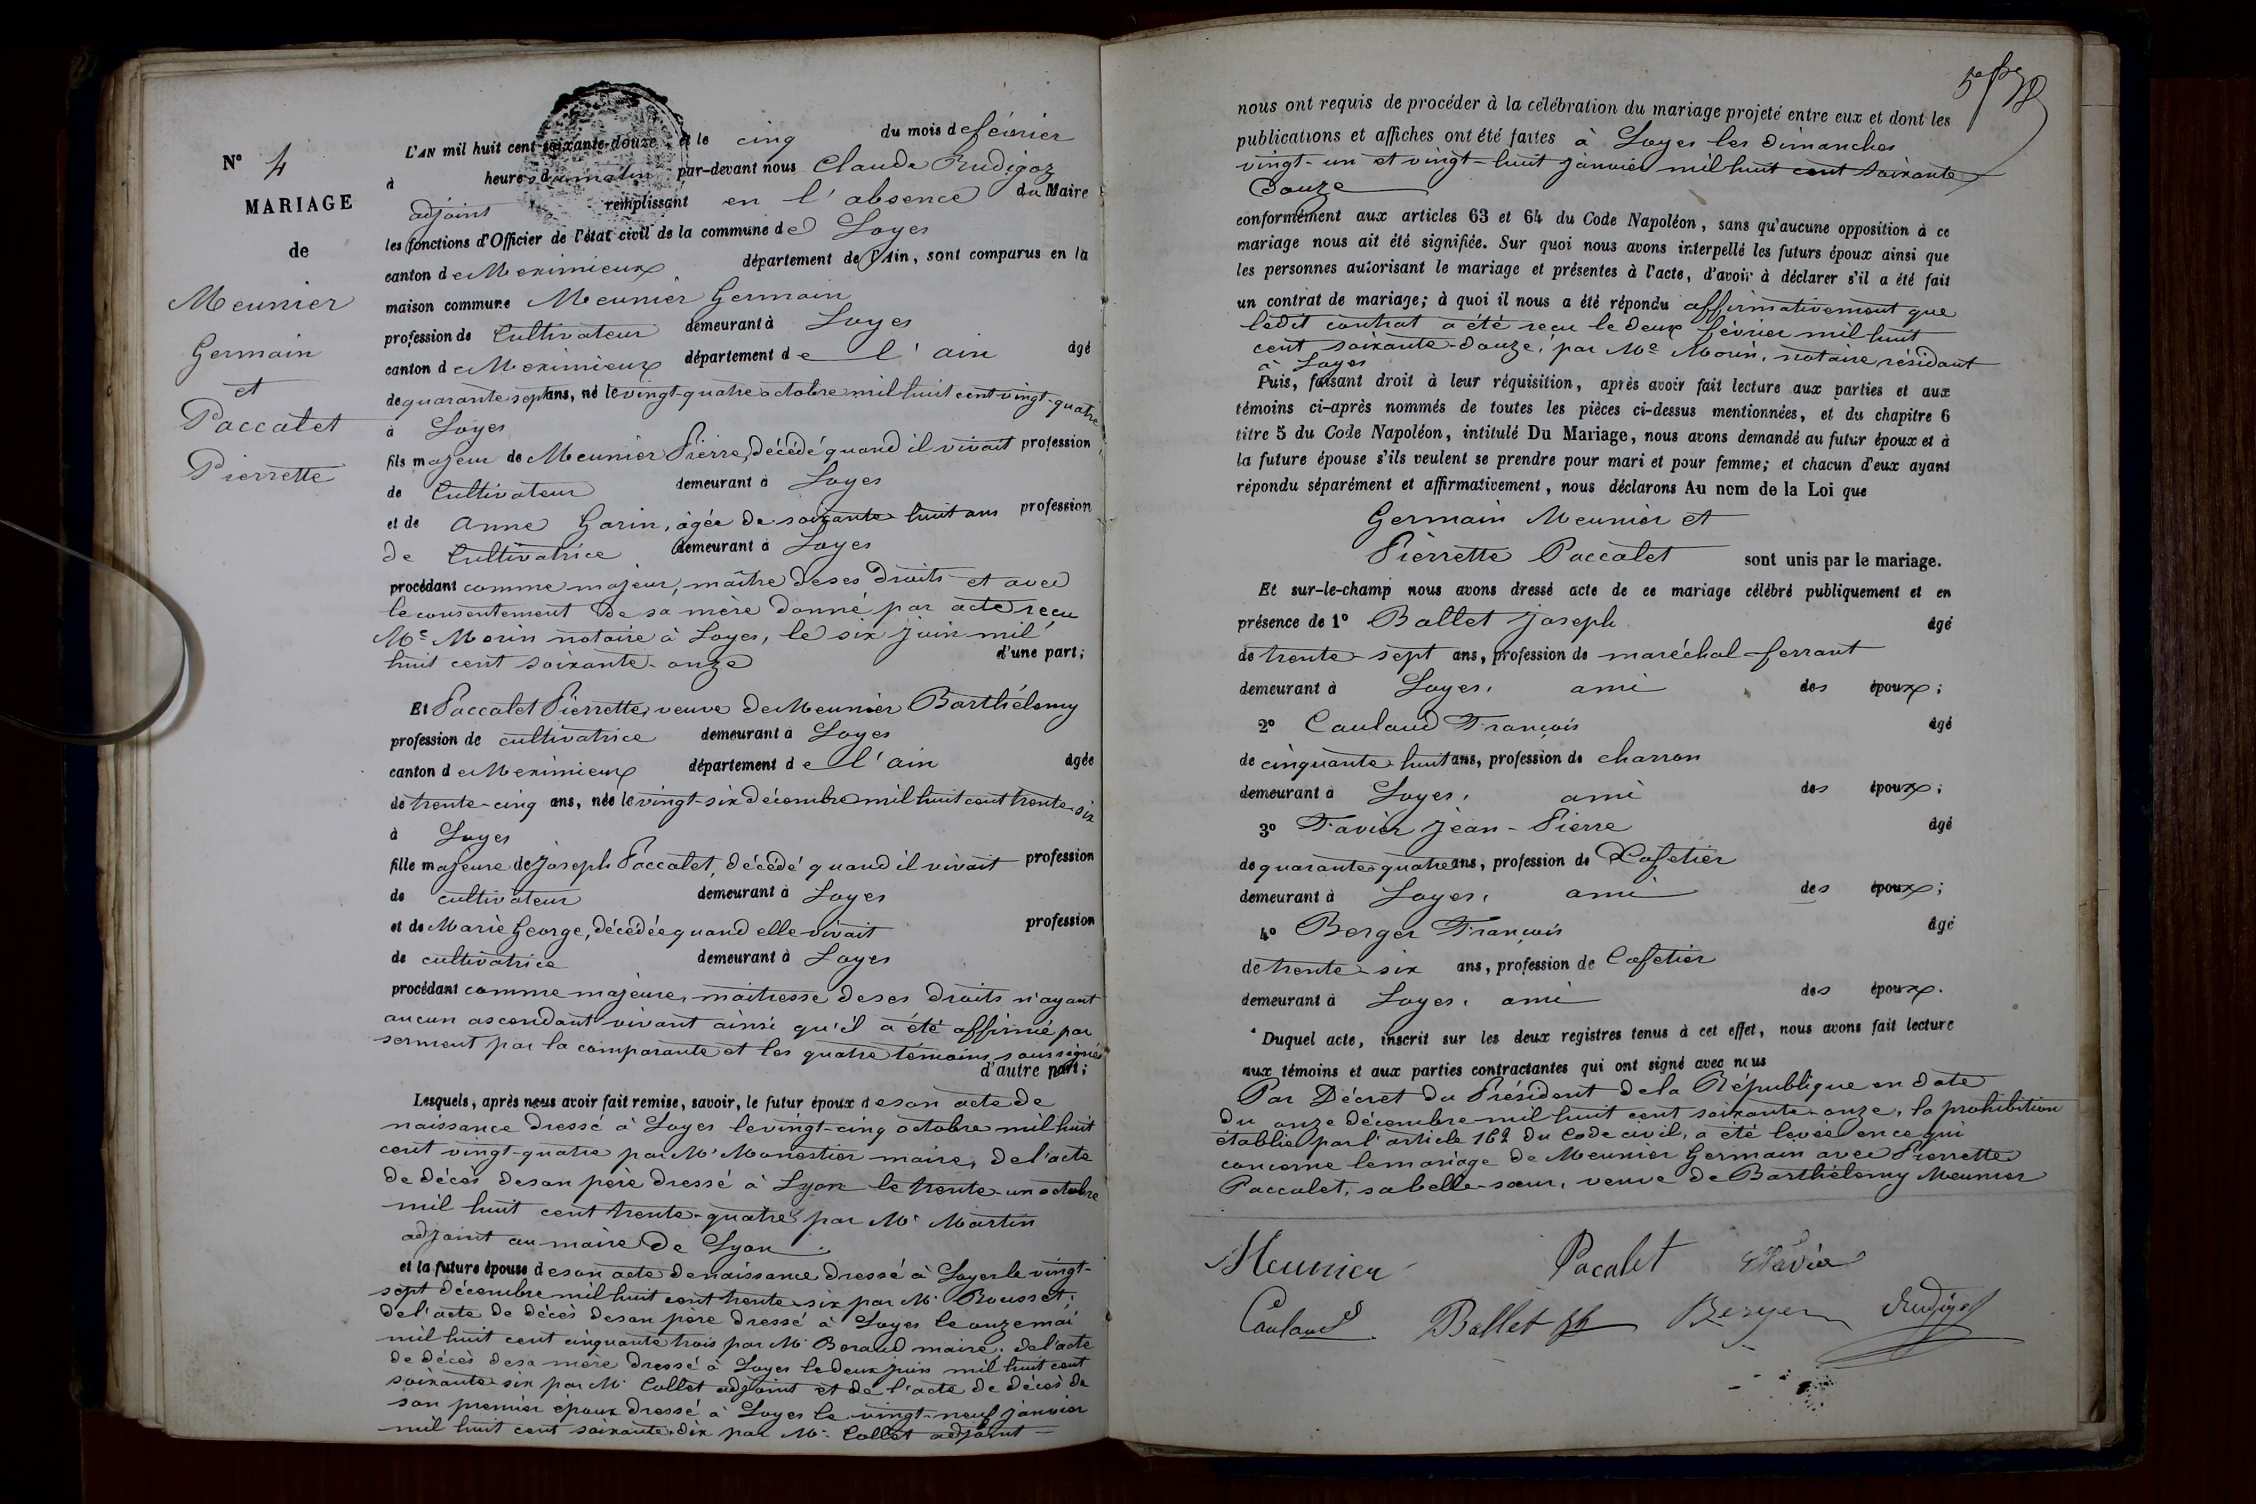 N° 4
MARIAGE
de
Meunier
Germain
et
Paccalet
Pierrette
L'AN mil huit cent soixante-douze et le cinq du mois de février
à heures du matin par-devant nous Claude Rudigoz
adjoint remplissant en l'absence du Maire
les fonctions d'Officier de l'état civil de la commune de Loyes
canton de Meximieux département de l'Ain, sont comparus en la
maison commune Meunier Germain
profession de Cultivateur demeurant à Loyes
canton de Meximieux département de l'ain âgé
de quarante sept ans, né le vingt-quatre octobre mil huit cent vingt-quatre
à Loyes
fils majeur de Meunier Pierre, décédé quand il vivait profession
de Cultivateur demeurant à Loyes
et de Anne Garin, âgée de soixante huit ans profession
de Cultivatrice demeurant à Loyes
procédant comme majeur, maître de ses Droits et avec
le consentement de sa mère donné par acte reçu
Me Morin notaire à Loyes, le six juin mil
huit cent soixante-onze d'une part;
Et Paccalet Pierrette, veuve de Meunier Barthélemy
profession de cultivatrice demeurant à Loyes
canton de Meximieux département de l'ain âgée
de trente-cinq ans, née le vingt-six décembre mil huit cent trente-six
à Loyes
fille majeure de Joseph Paccalet, décédé quand il vivait profession
de cultivateur demeurant à Loyes
et de Marie George, décédée quand elle vivait profession
de cultivatrice demeurant à Loyes
procédant comme majeure, maîtresse de ses droits n'ayant
aucun ascendant vivant ainsi qu'il a été affirmé par
serment par la comparante et les quatre témoins soussignés
d'autre part;
Lesquels, après nous avoir fait remise, savoir, le futur époux de son acte de
naissance dressé à Loyes le vingt-cinq octobre mil huit
cent vingt-quatre par Mr Monestier maire, de l'acte
de décès de son père dressé à Lyon le trente-un octobre
mil huit cent trente-quatre par Mr Martin
adjoint au maire de Lyon
et la future épouse de son acte de naissance dressé à Loyes le vingt-
sept décembre mil huit cent trente-six par Mr Rousset;
de l'acte de décès de son père dressé à Loyes le onze mai
mil huit cent cinquante trois par Mr Beraud maire; de l'acte
de décès de sa mère dressé à Loyes le deux juin mil huit cent
soixante-six par Mr Collet adjoint et de l'acte de décès de
son premier époux dressé à Loyes le vingt-neuf janvier
mil huit cent soixante-dix par Mr Collet adjoint
nous ont requis de procéder à la célébration du mariage projeté entre eux et dont les
publications et affiches ont été faites à Loyes les dimanches
vingt-un et vingt-huit janvier mil huit cent soixante
douze
conformément aux articles 63 et 64 du Code Napoléon, sans qu'aucune opposition à ce
mariage nous ait été signifiée. Sur quoi nous avons interpellé les futurs époux ainsi que
les personnes autorisant le mariage et présentes à l'acte, d'avoir à déclarer s'il a été fait
un contrat de mariage; à quoi il nous a été répondu affirmativement que
ledit contrat a été reçu le deux février mil huit
cent soixante-douze, par Me Morin, notaire résidant
à Loyes
Puis, faisant droit à leur réquisition, après avoir fait lecture aux parties et aux
témoins ci-après nommés de toutes les pièces ci-dessus mentionnées, et du chapitre 6
titre 5 du Code Napoléon, intitulé Du Mariage, nous avons demandé au futur époux et à
la future épouse s'ils veulent se prendre pour mari et pour femme; et chacun d'eux ayant
répondu séparément et affirmativement, nous déclarons Au nom de la Loi que
Germain Meunier et
Pierrette Paccalet sont unis par le mariage.
Et sur-le-champ nous avons dressé acte de ce mariage célébré publiquement et en
présence de 1° Ballet Joseph âgé
de trente-sept ans, profession de maréchal-ferrant
demeurant à Loyes, ami des époux;
2° Caulaud François âgé
de cinquante-huit ans, profession de charron
demeurant à Loyes, ami des époux;
3° Favier Jean-Pierre âgé
de quarante quatre ans, profession de Cafetier
demeurant à Loyes, ami des époux;
4° Berger François âgé
de trente-six ans, profession de Cafetier
demeurant à Loyes, ami des époux.
Duquel acte, inscrit sur les deux registres tenus à cet effet, nous avons fait lecture
aux témoins et aux parties contractantes qui ont signé avec nous
Par Décret du Président de la République en date
du onze décembre mil huit cent soixante-onze, la prohibition
établie par l'article 162 du Code civil, a été levée en ce qui
concerne le mariage de Meunier Germain avec Pierrette
Paccalet, sa belle-sœur, veuve de Barthélemy Meunier
Meunier Pacalet Favier
Caulaud Ballet Berger Rudigoz